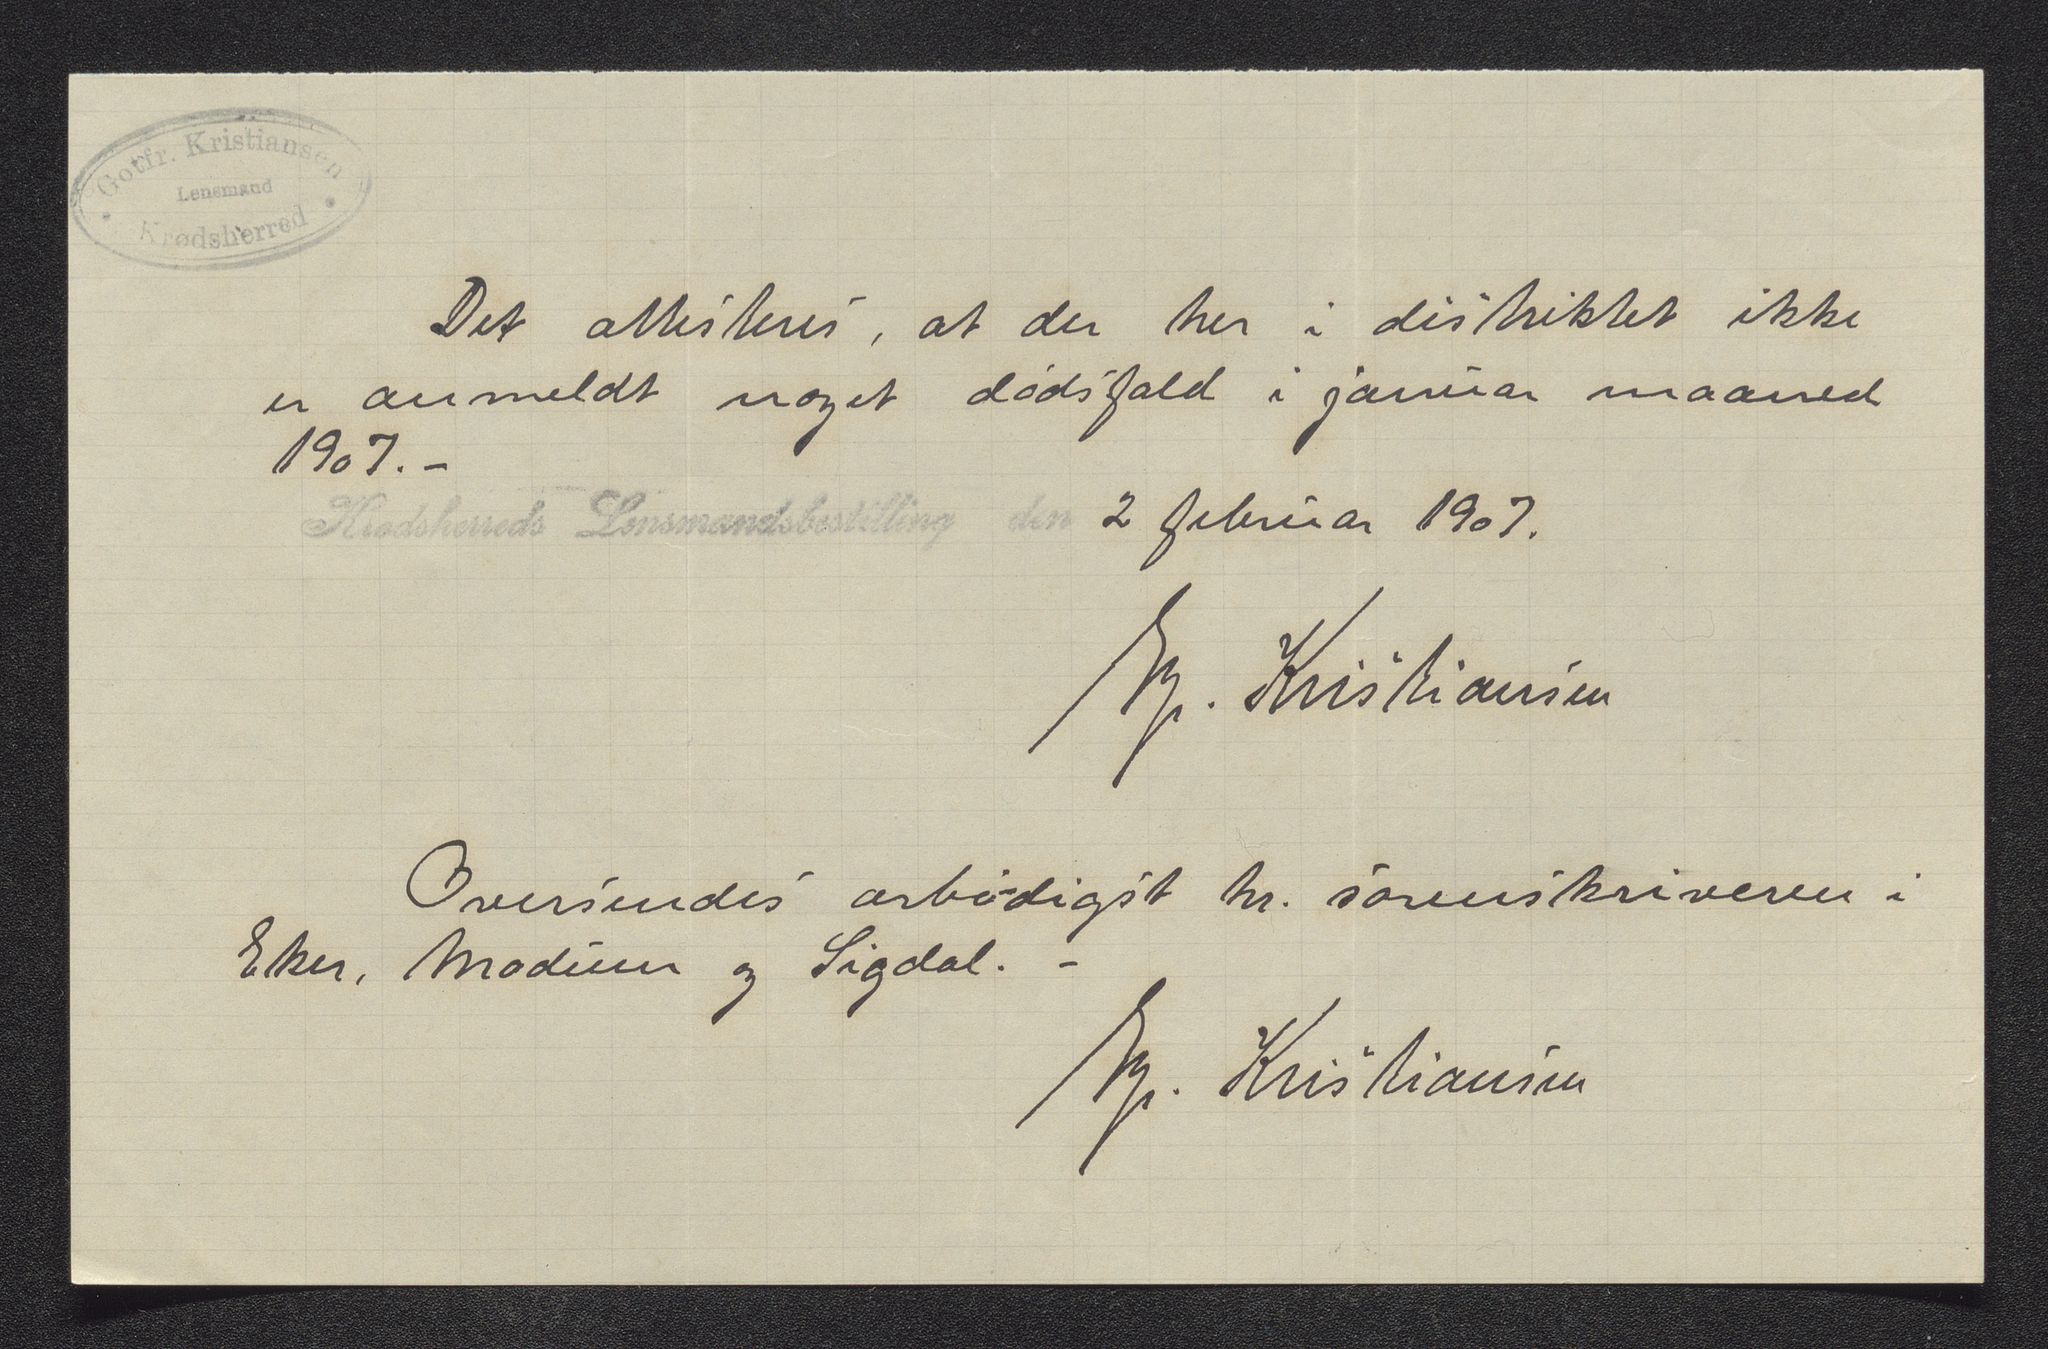 Gotfr. Kristiansen
Lensmand
Krødsherred
Det attesteres, at der her i distriktet ikke
er anmeldt noget dødsfald i januar maaned
1907. -
Krødsherreds Lensmandsbestilling den 2 februar 1907.
Kristiansen
Oversendes ærbødigst hr. sorenskriveren i
Eker, Modum og Sigdal. -
Kristiansen